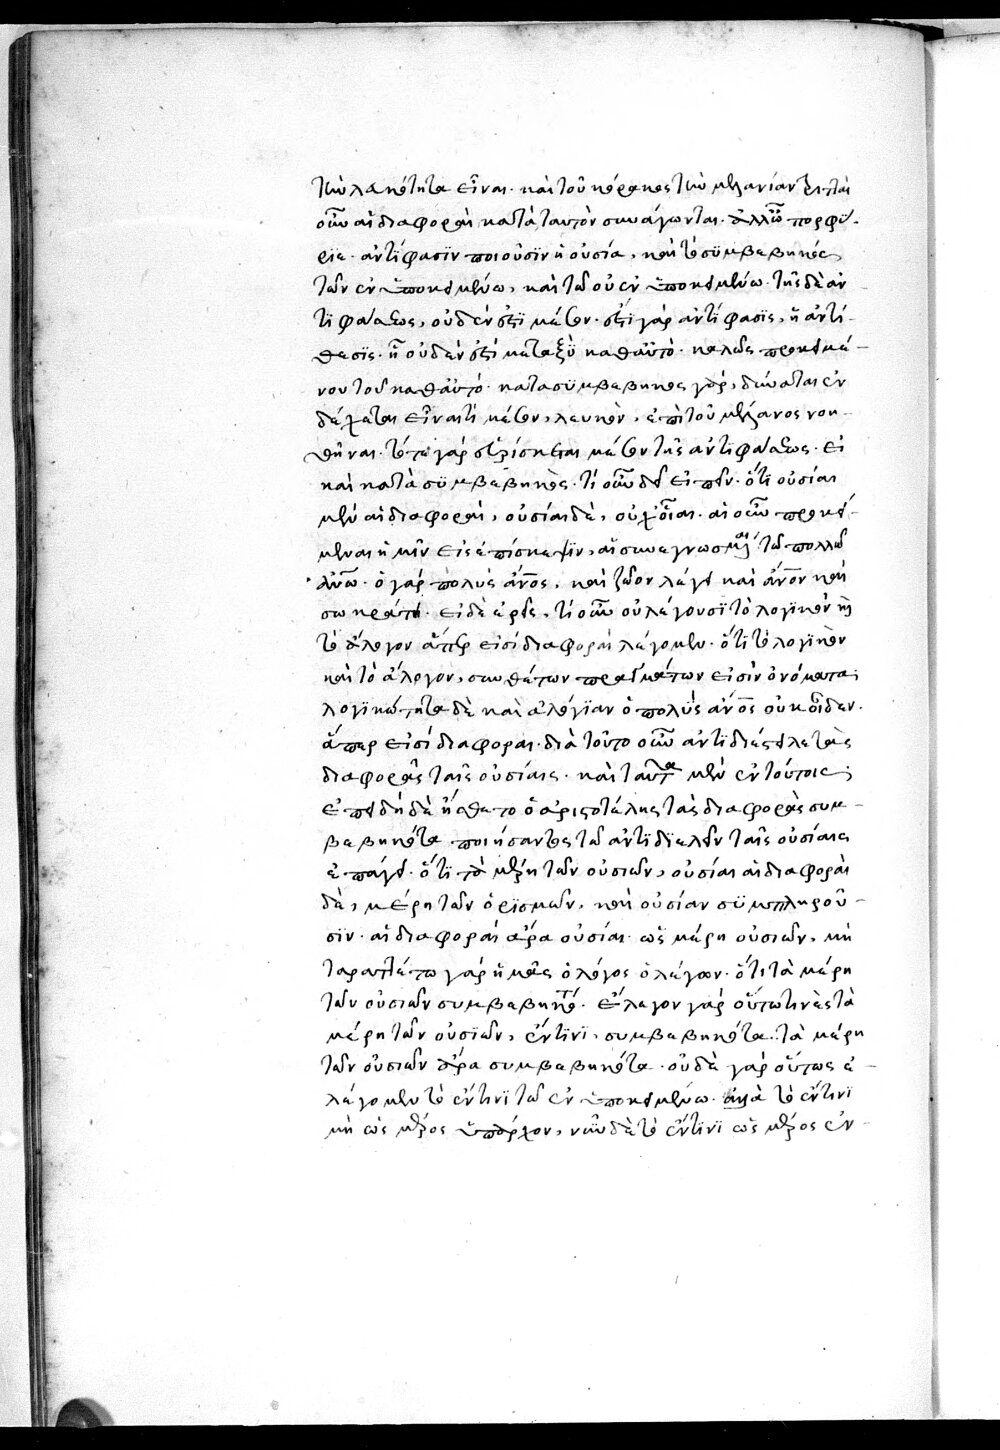 τὴν λευκότητα εἶναι· καὶ τοῦ κόρακος τὴν μελανίαν
οὖν αἱ διαφοραὶ κατὰ ταυτὸν συνάγωνται· ἀλλ' ὦ πορφύ-
ριε· ἀντίφασϊν ποιοῦσϊν ἡ οὐσία, καὶ τὸ συμβεβηκός,
τῶν ἐν ὑποκειμένω, καὶ τῶ οὐκ ἐν ὑποκειμένω· τῆς δὲ ἀν
τϊφάσεως, οὐδέν ἐστϊ μέσον· ἐστϊ γάρ ἀντίφασϊς, ἡ ἀντί-
θεσϊς· ἧ οὐδέν ἐστί μεταξὺ καθ' αὑτό· καλῶς προκειμέ-
νου τοῦ καθ' αὑτό· κατὰ συμβεβηκος γάρ, δύναται ἐν
δέχεται εἶναι τί μέσον, λευκὸν, ἐπὶ τοῦ μέλανος νοη-
θῆναι· τότε γάρ εὑρίσκεται μέσον τῆς ἀντϊφάσεως· εἰ
καὶ κατὰ συμβεβηκὸς· τί οὖν δεῖ εἰπεῖν· ὅτϊ οὐσίαι
μὲν αἱ διαφοραὶ, οὐσίαι δὲ, οὐχ' οἷαι· αἱ οὖν προκεί-
μεναι ἡμῖν εἰς ἐπίσκεψϊν, αἱ συνεγνωσμέναι τῶ πολλῶ
ἀνω· ὁ γάρ πολὺς ἄνος, καὶ ζῶον λέγει καὶ ἄνον καὶ
σωκράτη· εἰ δὲ ἐρεῖς, τί οὖν οὐ λέγουσϊ τὸ λογϊκὸν καὶ
τὸ ἄλογον ἅπερ εἰσί διαφοραὶ λέγομεν· ὅτϊ τὸ λογϊκὸν
καὶ τὸ ἄλογον, συνθέτων πραγμάτων εἰσὶν ὀνόματα·
λογϊκότητα δὲ καὶ ἀλογϊαν ὁ πολὺς ἄνος οὐκ οἶδεν·
ἅπερ εἰσί διαφοραι· διὰ τοῦτο οὖν ἀντϊδιέστειλε τὰς
διαφορὰς ταῖς οὐσίαις· καὶ ταῦτα μὲν ἐν τούτοις·
ἐπειδὴ δὲ ἤσθετο ὁ ἀριστοτέλης τὰς διαφορὰς συμ-
βεβηκότα ποιήσαντος τῶ ἀντϊδϊελεῖν ταῖς οὐσίαις
ἐπάγει· ὅτϊ τὰ μέρη τῶν οὐσιῶν, οὐσίαι αἱ διαφοραὶ
δὲ, μέρη τῶν ὁρϊσμῶν, καὶ οὐσίαν συμπληροῦ-
σϊν· αἱ διαφοραὶ ἄρα οὐσίαι· ὡς μέρη οὐσιῶν, μὴ
ταραττέτω γάρ ἡμᾶς ὁ λόγος ὁ λέγων· ὅτι τὰ μέρη
τῶν οὐσιῶν συμβεβηκότ· ἔλεγον γάρ οὕτω τινὲς τὰ
μέρη τῶν οὐσϊῶν, ἔν τϊνϊ, συμβεβηκότα· τὰ μέρη
τῶν οὐσιῶν ἄρα συμβεβηκότα· οὐδὲ γάρ οὕτως ἐ-
λέγομεν τὸ ἔν τινϊ τῶ ἐν ὑποκειμένω· ἀλλὰ τὸ ἔν τινϊ
μὴ ὡς μέρος ὑπάρχον, νῦν δὲ τὸ ἔν τϊνϊ ὡς μέρος ἐν-